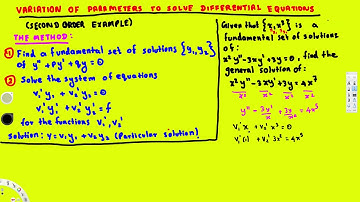 VARIATION OF PARAMETERS TO SOLVE DIFFERENTIAL EQUATIONS
(SECOND ORDER EXAMPLE)
THE METHOD:
① Find a fundamental set of solutions {y₁,y₂}
of y″ + py′ + qy = 0
② Solve the system of equations
v₁′ y₁ + v₂′ y₂ = 0
v₁′ y₁′ + v₂′ y₂′ = f
for the functions v₁′, v₂′
Solution: y = v₁y₁ + v₂y₂ (Particular solution)
Given that {x, x³} is a
fundamental set of solutions
of:
x²y″ - 3xy′ + 3y = 0, find the
general solution of:
x²y″ - 3xy′ + 3y = 4x⁷
x² x² x² x²
y″ - 3y′/x + 3y/x² = 4x⁵
v₁′x + v₂′x³ = 0
v₁′(1) + v₂′3x² = 4x⁵